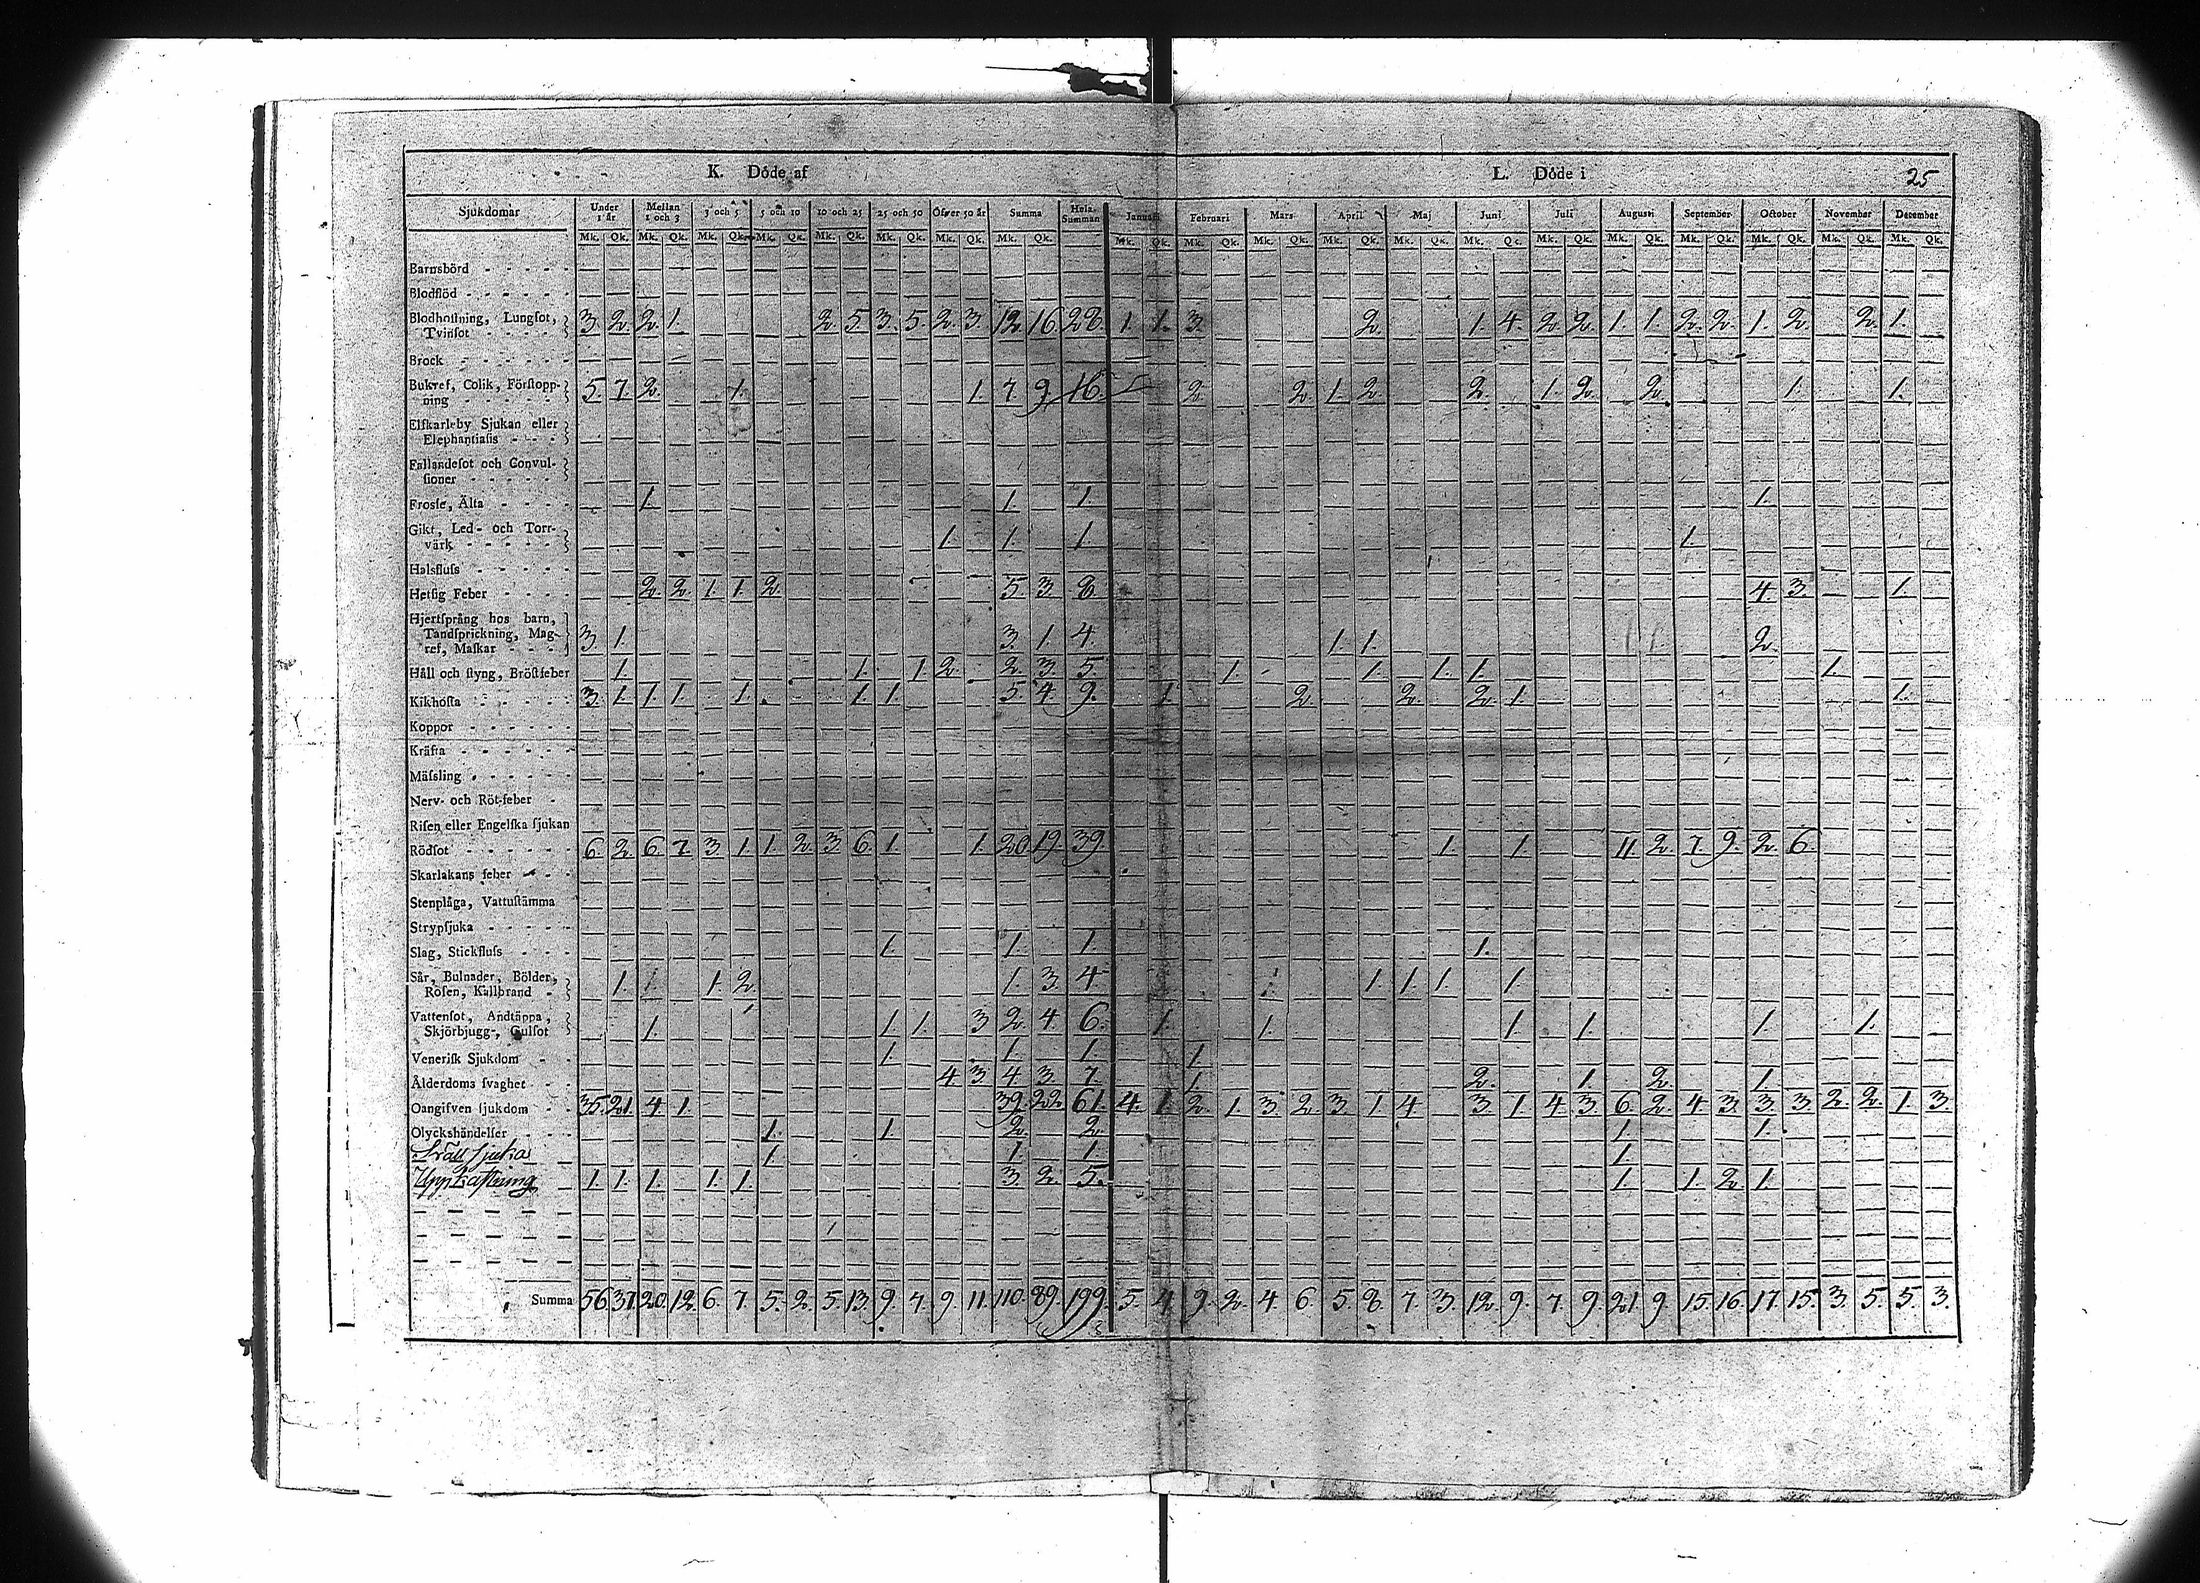 K. Döde af
L. Döde i 25
Sjukdomar Under 1 år Mellan 1 och 3 3 och 5 5 och 10 10 och 25 25 och 50 Öfver 50 år Summa Hela Summan Januarii Februari Mars April Maj Juni Juli Augusti September October November December
Mk. Qk. Mk. Qk. Mk. Qk. Mk. Qk. Mk. Qk. Mk. Qk. Mk. Qk. Mk. Qk. Mk. Qk. Mk. Qk. Mk. Qk. Mk. Qk. Mk. Qk. Mk. Qk. Mk. Qk. Mk. Qk. Mk. Qk. Mk. Qk. Mk. Qk. Mk. Qk.
Barnsbörd
Blodflöd
Blodhostning, Lungsot,
Tvinsot 3. 2. 2. 1. 2. 5. 3. 5. 2. 3. 12. 16. 28. 1. 1. 3. 2. 1. 4. 2. 2. 1. 1. 2. 2. 1. 2. 2. 1.
Brock
Bukref, Colik, Förstopp-
ning 5. 7. 2. 1. 1. 7. 9. 16. 2. 2. 1. 2. 2. 1. 2. 2. 1. 1.
Elfkarleby Sjukan eller
Elephantiasis
Fallandesot och Convul-
sioner
Frossa, Älta 1. 1. 1. 1.
Gikt, Led- och Torr-
värk 1. 1. 1. 1.
Halsfluss
Hetsig Feber 2. 2. 1. 1. 2. 5. 3. 8. 4. 3. 1.
Hjertsprång hos barn,
Tandsprickning, Mag-
ref, Maskar 3. 1. 3. 1. 4. 1. 1. 2.
Håll och styng, Bröstfeber 1. 1. 1. 2. 2. 3. 5. 1. 1. 1. 1. 1.
Kikhosta 3. 1. 1. 1. 1. 1. 1. 5. 4. 9. 1. 2. 2. 2. 1. 1.
Koppor
Kräfta
Mässling
Nerv- och Röt-feber
Risen eller Engelska sjukan
Rödsot 6. 2. 6. 7. 3. 1. 1. 2. 3. 6. 1. 1. 20. 19. 39. 1. 1. 11. 2. 7. 9. 2. 6.
Skarlakans feber
Stenplåga, Vattustämma
Strypsjuka
Slag, Stickfluss 1. 1. 1. 1.
Sår, Bulnader, Bölder,
Rosen, Kallbrand 1. 1. 2. 1. 3. 4. 1. 1. 1. 1.
Vattensot, Andtäppa,
Skjörbjugg-, Gulsot 1. 1. 1. 3 2. 4. 6. 1. 1. 1. 1. 1. 1.
Venerisk Sjukdom 1. 1. 1. 1.
Ålderdoms svaghet 4. 3. 4. 3. 7. 1. 2. 1. 2. 1.
Oangifven sjukdom 35. 21. 4. 1. 39. 22. 61. 4. 1. 2. 1. 3. 2. 3. 1. 4. 3. 1. 4. 3. 6. 2. 4. 3. 3. 3. 2. 2. 1. 3.
Olyckshändelser 1. 1. 2. 2. 1. 1.
sjuka 1. 1. 1. 1.
Uppkastning 1. 1. 1. 1. 1. 3. 2. 5. 1. 1. 2. 1.
Summa 56. 37. 20. 12. 6. 7. 5. 2. 5. 13. 9. 7. 9. 11. 110. 89. 199. 5. 4. 9. 2. 4. 6. 5. 8. 7. 3. 12. 9. 7. 9. 21. 9. 15. 16. 17. 15. 3. 5. 5. 3.